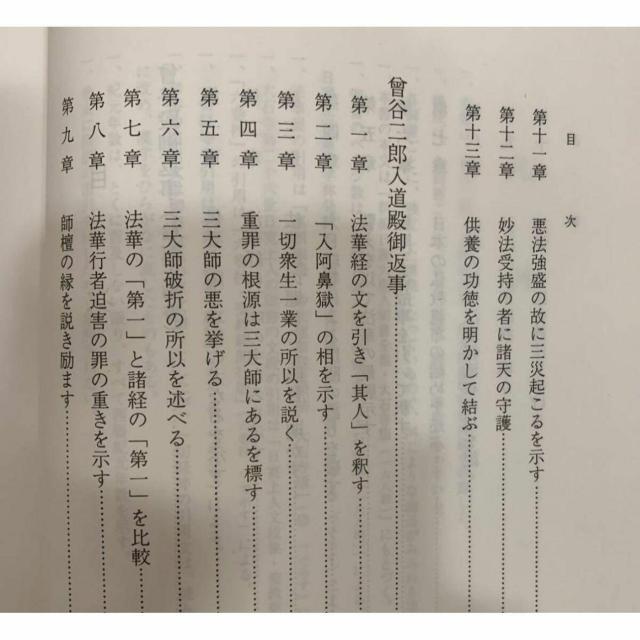 目 次
第十一章 悪法強盛の故に三災起こるを示す………
第十二章 妙法受持の者に諸天の守護………
第十三章 供養の功徳を明かして結ぶ………
曾谷二郎入道殿御返事………
第一章 法華経の文を引き「其人」を釈す………
第二章 「入阿鼻獄」の相を示す………
第三章 一切衆生一業の所以を説く………
第四章 重罪の根源は三大師にあるを標す………
第五章 三大師の悪を挙げる………
第六章 三大師破折の所以を述べる………
第七章 法華の「第一」と諸経の「第一」を比較………
第八章 法華行者迫害の罪の重きを示す………
第九章 師檀の縁を説き励ます………